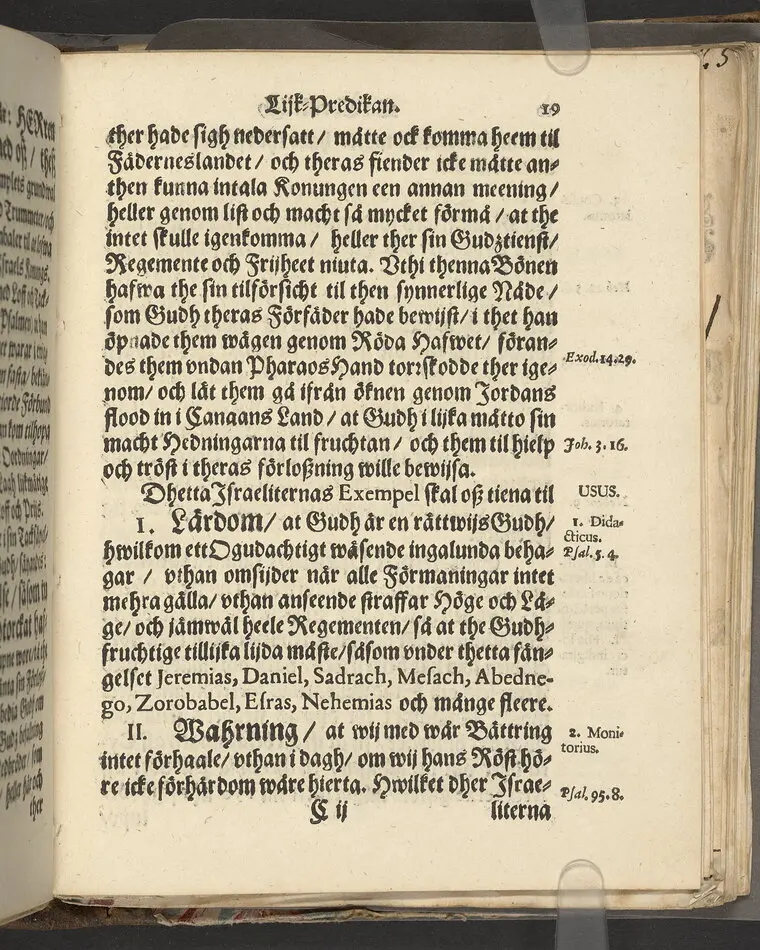 Lijk-Predikan. 19
ther hade sigh nedersatt / måtte ock komma heem til
Fäderneslandet / och theras fiender icke måtte an-
then kunna intala Konungen een annan meening /
heller genom list och macht så mycket förmå / at the
intet skulle igenkomma / heller ther sin Gudztienst /
Regemente och Frijheet niuta. Vthi thenna Bönen
hafwa the sin tilförsicht til then synnerlige Nåde /
som Gudh theras Förfäder hade bewijst / i thet han
öpnade them wägen genom Röda Hafwet / föran-
des them vndan Pharaos Hand torrskodde ther ige-
Exod. 14. 29.
nom / och lät them gå ifrån öknen genom Jordans
flood in i Canaans Land / at Gudh i lijka måtto sin
macht Hedningarna til fruchtan / och them til hielp
Job. 3. 16.
och tröst i theras förloßning wille bewijsa.
Dhetta Israeliternas Exempel skal oß tiena til
USUS.
I. Lärdom / at Gudh är en rättwijs Gudh /
1. Dida-
cticus.
hwilkom ett Ogudachtigt wäsende ingalunda beha-
Psal. 5. 4.
gar / vthan omsijder när alle Förmaningar intet
mehra gälla / vthan anseende straffar Höge och Lå-
ge / och jämwäl heele Regementen / så at the Gudh-
fruchtige tillijka lijda måste / såsom vnder thetta fän-
gelset Jeremias, Daniel, Sadrach, Mesach, Abedne-
go, Zorobabel, Esras, Nehemias och månge fleere.
II. Wahrning / at wij med wår Bättring
2. Moni-
torius.
intet förhaale / vthan i dagh / om wij hans Röst hö-
re icke förhärdom wåre hierta. Hwilket dher Israe-
Psal. 95. 8.
C ij literna